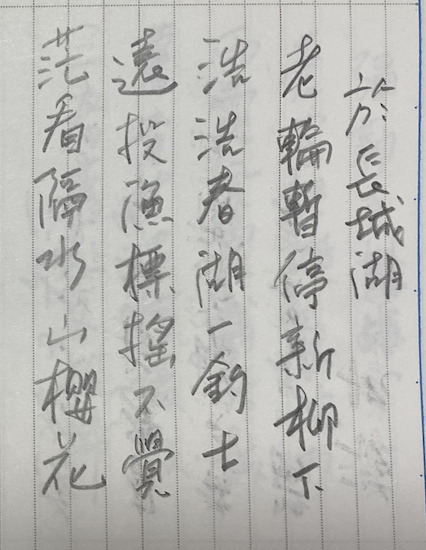 於長城湖
老輪暫停新柳下
浩浩春湖一釣士
遠投漁標搖不覺
茫看隔水山櫻花